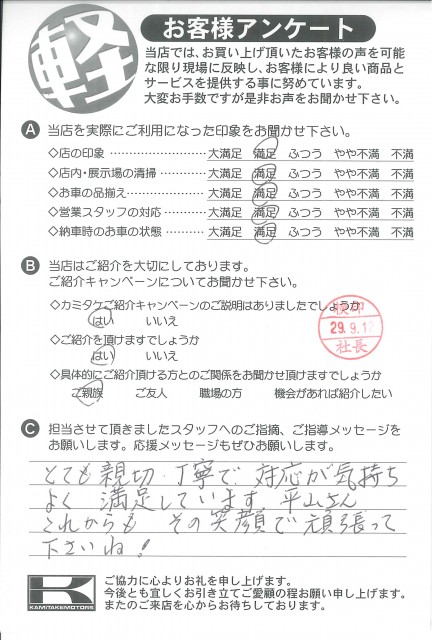 軽
お客様アンケート
当店では、お買い上げ頂いたお客様の声を可能
な限り現場に反映し、お客様により良い商品と
サービスを提供する事に努めています。
大変お手数ですが是非お声をお聞かせ下さい。
A 当店を実際にご利用になった印象をお聞かせ下さい。
◇店の印象 ……………………… 大満足 満足 ふつう やや不満 不満
◇店内・展示場の清掃 ………… 大満足 満足 ふつう やや不満 不満
◇お車の品揃え………………… 大満足 満足 ふつう やや不満 不満
◇営業スタッフの対応 ………… 大満足 満足 ふつう やや不満 不満
◇納車時のお車の状態 ………… 大満足 満足 ふつう やや不満 不満
B 当店はご紹介を大切にしております。
ご紹介キャンペーンについてお聞かせ下さい。
◇カミタケご紹介キャンペーンのご説明はありましたでしょうか
はい いいえ
◇ご紹介を頂けますでしょうか
はい いいえ
29.9.12
社長
◇具体的にご紹介頂ける方とのご関係をお聞かせ頂けますでしょうか
ご親族 ご友人 職場の方 機会があれば紹介したい
C 担当させて頂きましたスタッフへのご指摘、ご指導メッセージを
お願いします。応援メッセージもぜひお願いします。
とても親切・丁寧で対応が気持ち
よく 満足しています 平山さん
これからも その笑顔で頑張って
下さいね!
K
KAMITAKEMOTORS
ご協力に心よりお礼を申し上げます。
今後とも宜しくお引き立てご愛顧の程お願い申し上げます。
またのご来店を心からお待ちしております。